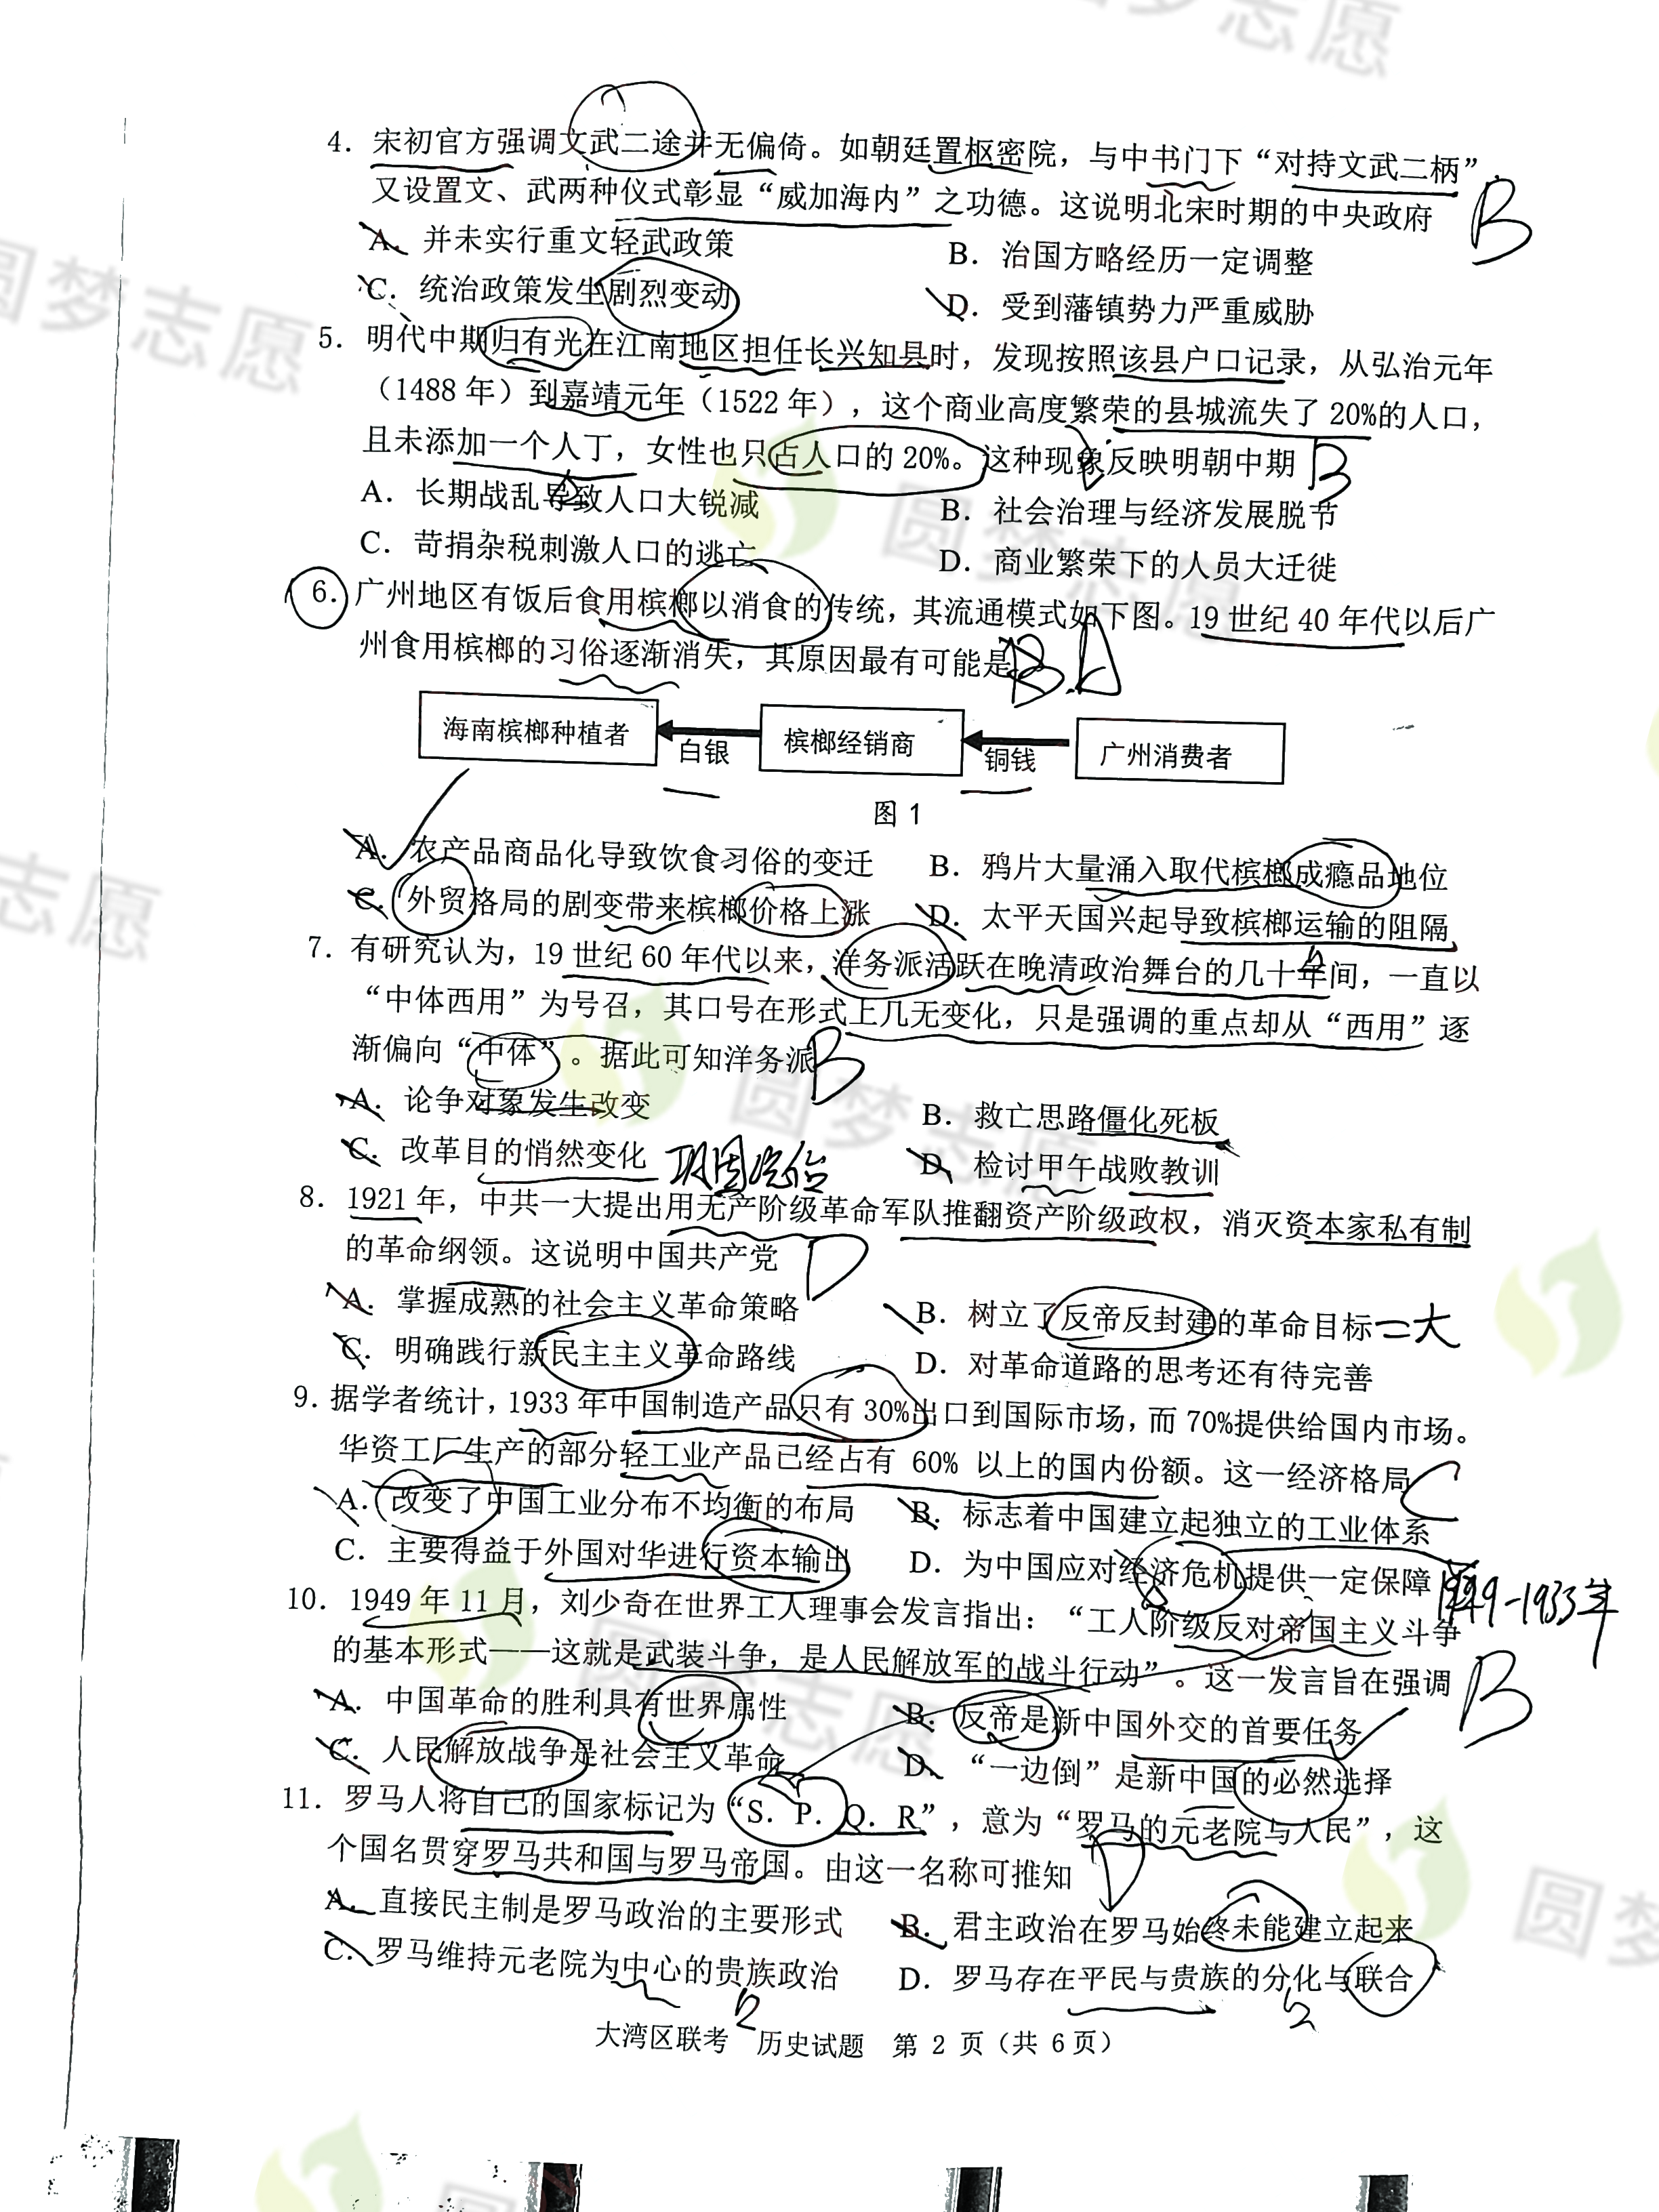 圆梦志愿
4. 宋初官方强调文武二途并无偏倚。如朝廷置枢密院，与中书门下“对持文武二柄”，
又设置文、武两种仪式彰显“威加海内”之功德。这说明北宋时期的中央政府
B
A. 并未实行重文轻武政策
B. 治国方略经历一定调整
C. 统治政策发生剧烈变动
D. 受到藩镇势力严重威胁
圆梦志愿
5. 明代中期归有光在江南地区担任长兴知县时，发现按照该县户口记录，从弘治元年
（1488 年）到嘉靖元年（1522 年），这个商业高度繁荣的县城流失了 20%的人口，
且未添加一个人丁，女性也只占人口的 20%。这种现象反映明朝中期
B
A. 长期战乱导致人口大锐减
B. 社会治理与经济发展脱节
C. 苛捐杂税刺激人口的逃亡
D. 商业繁荣下的人员大迁徙
圆梦志愿
6. 广州地区有饭后食用槟榔以消食的传统，其流通模式如下图。19 世纪 40 年代以后广
州食用槟榔的习俗逐渐消失，其原因最有可能是
B. A
海南槟榔种植者
白银
槟榔经销商
铜钱
广州消费者
图 1
A. 农产品商品化导致饮食习俗的变迁
B. 鸦片大量涌入取代槟榔成瘾品地位
C. 外贸格局的剧变带来槟榔价格上涨
D. 太平天国兴起导致槟榔运输的阻隔
志愿
7. 有研究认为，19 世纪 60 年代以来，洋务派活跃在晚清政治舞台的几十年间，一直以
“中体西用”为号召，其口号在形式上几无变化，只是强调的重点却从“西用”逐
渐偏向“中体”。据此可知洋务派
B
A. 论争对象发生改变
B. 救亡思路僵化死板
C. 改革目的悄然变化
巩固统治
D. 检讨甲午战败教训
圆梦志愿
8. 1921 年，中共一大提出用无产阶级革命军队推翻资产阶级政权，消灭资本家私有制
的革命纲领。这说明中国共产党
D
A. 掌握成熟的社会主义革命策略
B. 树立了反帝反封建的革命目标
二大
C. 明确践行新民主主义革命路线
D. 对革命道路的思考还有待完善
9. 据学者统计，1933 年中国制造产品只有 30%出口到国际市场，而 70%提供给国内市场。
华资工厂生产的部分轻工业产品已经占有 60% 以上的国内份额。这一经济格局
C
A. 改变了中国工业分布不均衡的布局
B. 标志着中国建立起独立的工业体系
C. 主要得益于外国对华进行资本输出
D. 为中国应对经济危机提供一定保障
-1933年
10. 1949 年 11 月，刘少奇在世界工人理事会发言指出：“工人阶级反对帝国主义斗争
的基本形式——这就是武装斗争，是人民解放军的战斗行动”。这一发言旨在强调
B
A. 中国革命的胜利具有世界属性
B. 反帝是新中国外交的首要任务
C. 人民解放战争是社会主义革命
D. “一边倒”是新中国的必然选择
圆梦志愿
11. 罗马人将自己的国家标记为“S. P. Q. R”，意为“罗马的元老院与人民”，这
个国名贯穿罗马共和国与罗马帝国。由这一名称可推知
D
A. 直接民主制是罗马政治的主要形式
B. 君主政治在罗马始终未能建立起来
C. 罗马维持元老院为中心的贵族政治
D. 罗马存在平民与贵族的分化与联合
圆梦
大湾区联考 历史试题 第 2 页（共 6 页）